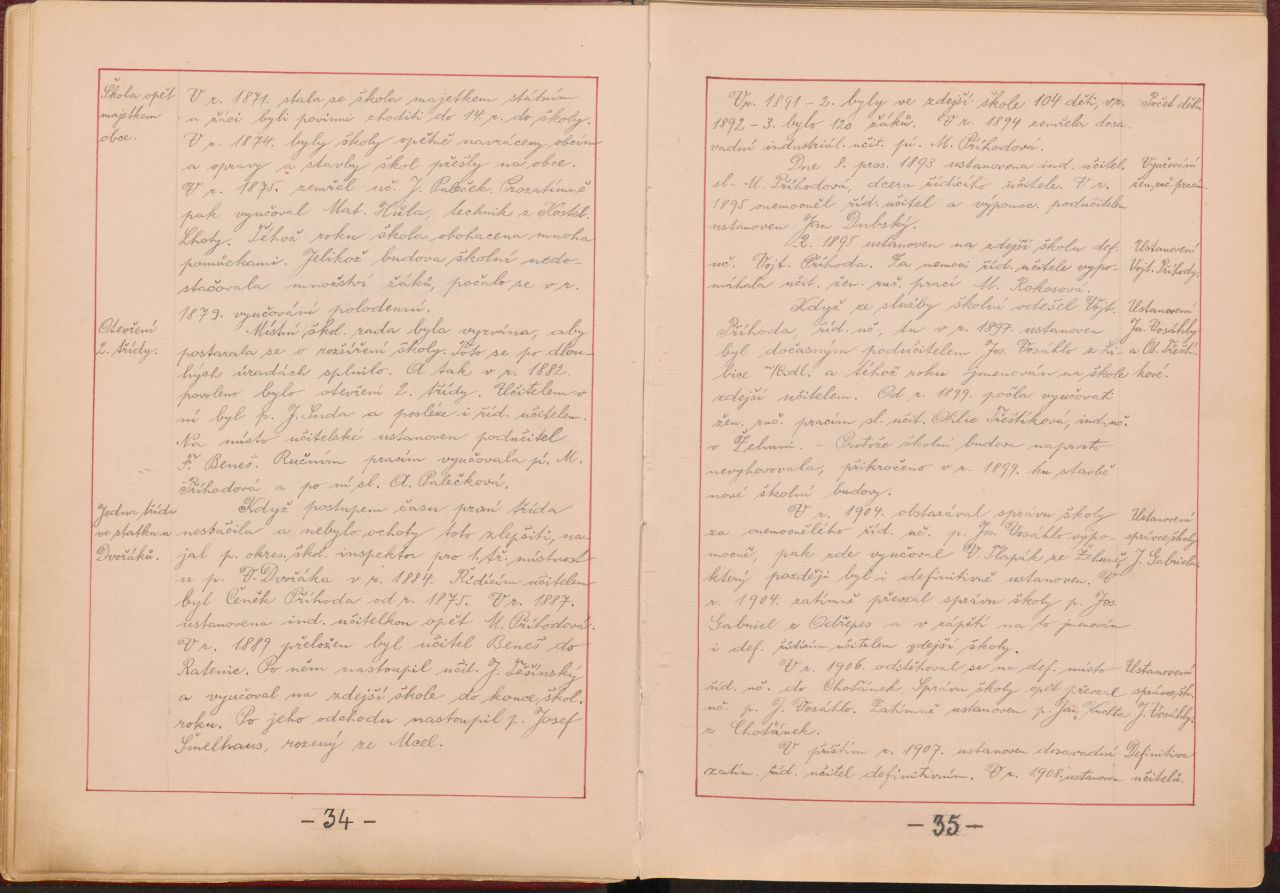 Škola opět
majetkem
obce.
V r. 1871. stala se škola majetkem státním
a žáci byli povinni choditi do 14. r. do školy.
V r. 1874. byly školy opětně navráceny obcím
a opravy a stavby škol přešly na obce.
V r. 1875. zemřel uč. J. Paleček. Prozatímně
pak vyučoval Mat. Hůla, technik z Kostel.
Lhoty. Téhož roku škola obohacena mnoha
pomůckami. Jelikož budova školní nedo-
stačovala množství žáků, počalo se v r.
1879. vyučování polodenní.
Otevření
2. třídy.
Místní škol. rada byla vyzvána, aby
postarala se o rozšíření školy. Toto se po dlou-
hých úradách splnilo. A tak v r. 1882.
povoleno bylo otevření 2. třídy. Učitelem v
ní byl p. J. Luda a posléze i říd. učitelem.
Na místo učitelské ustanoven podučitel
F. Beneš. Ručním pracím vyučovala pí. M.
Příhodová a po ní sl. A. Palečková.
Jedna třída
ve statku u
Dvořáků.
Když postupem času první třída
nestačila a nebylo ochoty toto zlepšiti, na-
jal p. okres. škol. inspektor pro 1. tř. místnost
u p. V. Dvořáka v r. 1884. Řídícím učitelem
byl Čeněk Příhoda od r. 1875. V r. 1887.
ustanovena ind. učitelkou opět M. Příhodová.
V r. 1889 přeložen byl učitel Beneš do
Ratenic. Po něm nastoupil učit. J. Těšínský
a vyučoval na zdejší škole do konce škol.
roku. Po jeho odchodu nastoupil p. Josef
Šmelhaus, rozený ze Mcel.
- 34 -
V r. 1891 - 2. byly ve zdejší škole 104 děti, v r.
1892 - 3. bylo 120 žáků. V r. 1894 zemřela dosa-
vadní industriál. učit. pí. M. Příhodová.
Počet dětí.
Dne 8. pros. 1893 ustanovena ind. učitel.
sl. M. Příhodová, dcera řídícího učitele. V r.
1895 onemocněl říd. učitel a vypomoc. podučitelem
ustanoven Jan Dubský.
Vyučování
žen. uč. prací.
R. 1895 ustanoven na zdejší školu def.
uč. Vojt. Příhoda. Za nemoci říd. učitele vypo-
máhala učit. žen. ruč. prací M. Rokosová.
Ustanovení
Vojt. Příhody.
Když ze služby školní odešel Vojt.
Příhoda říd. uč., tu v r. 1897. ustanoven
byl dočasným podučitelem Jos. Vosáhlo z Li-
bice n/Cidl. a téhož roku jmenován na škole
zdejší učitelem. Od r. 1899. počla vyučovat
žen. ruč. pracím sl. učit. Otilie Třeštíková, ind. uč.
v Žehuni. - Protože školní budova naprosto
nevyhovovala, přikročeno v r. 1899. ku stavbě
nové školní budovy.
Ustanovení
Jos. Vosáhly
a Ot. Třeští-
kové.
V r. 1904. obstarával správu školy
za onemocnělého říd. uč. p. Jos. Vosáhlo výpo-
mocně, pak zde vyučoval V. Tlapák ze Žehuně,
který později byl i definitivně ustanoven. V
r. 1904. zatímně převzal správu školy p. Jos.
Gabriel z Odřepes a v zápětí na to jmenován
i def. řídícím učitelem zdejší školy.
Ustanovení
správce školy
J. Gabriela.
V r. 1906. odstěhoval se na def. místo
říd. uč. do Choťánek. Správu školy opět převzal
uč. p. J. Vosáhlo. Zatímně ustanoven p. Jan Kuchta
z Choťánek.
Ustanovení
správce šk.
J. Vosáhly.
V příštím r. 1907. ustanoven dosavadní
zatím. říd. učitel definitivním. V r. 1908. ustanoven
Definitiva
učitelů.
- 35 -